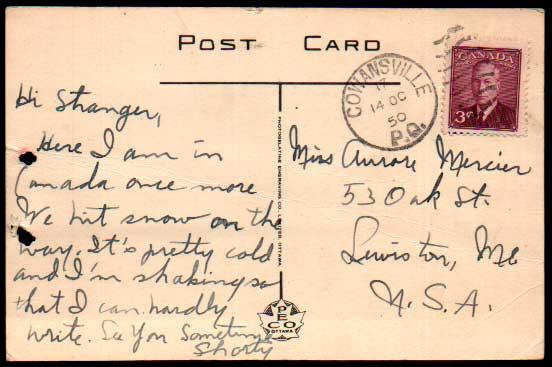 POST CARD
COWANSVILLE
17
14 OC
50
P.Q.
CANADA
3¢
Hi Stranger,
Here I am in
Canada once more
We hit snow on the
way. It's pretty cold
and I'm shaking so
that I can hardly
write. See You Sometime
Shorty
Miss Aurore Mercier
53 Oak St.
Lewiston, Me
U.S.A.
PHOTOGELATINE ENGRAVING CO. LIMITED, OTTAWA
PECO
OTTAWA